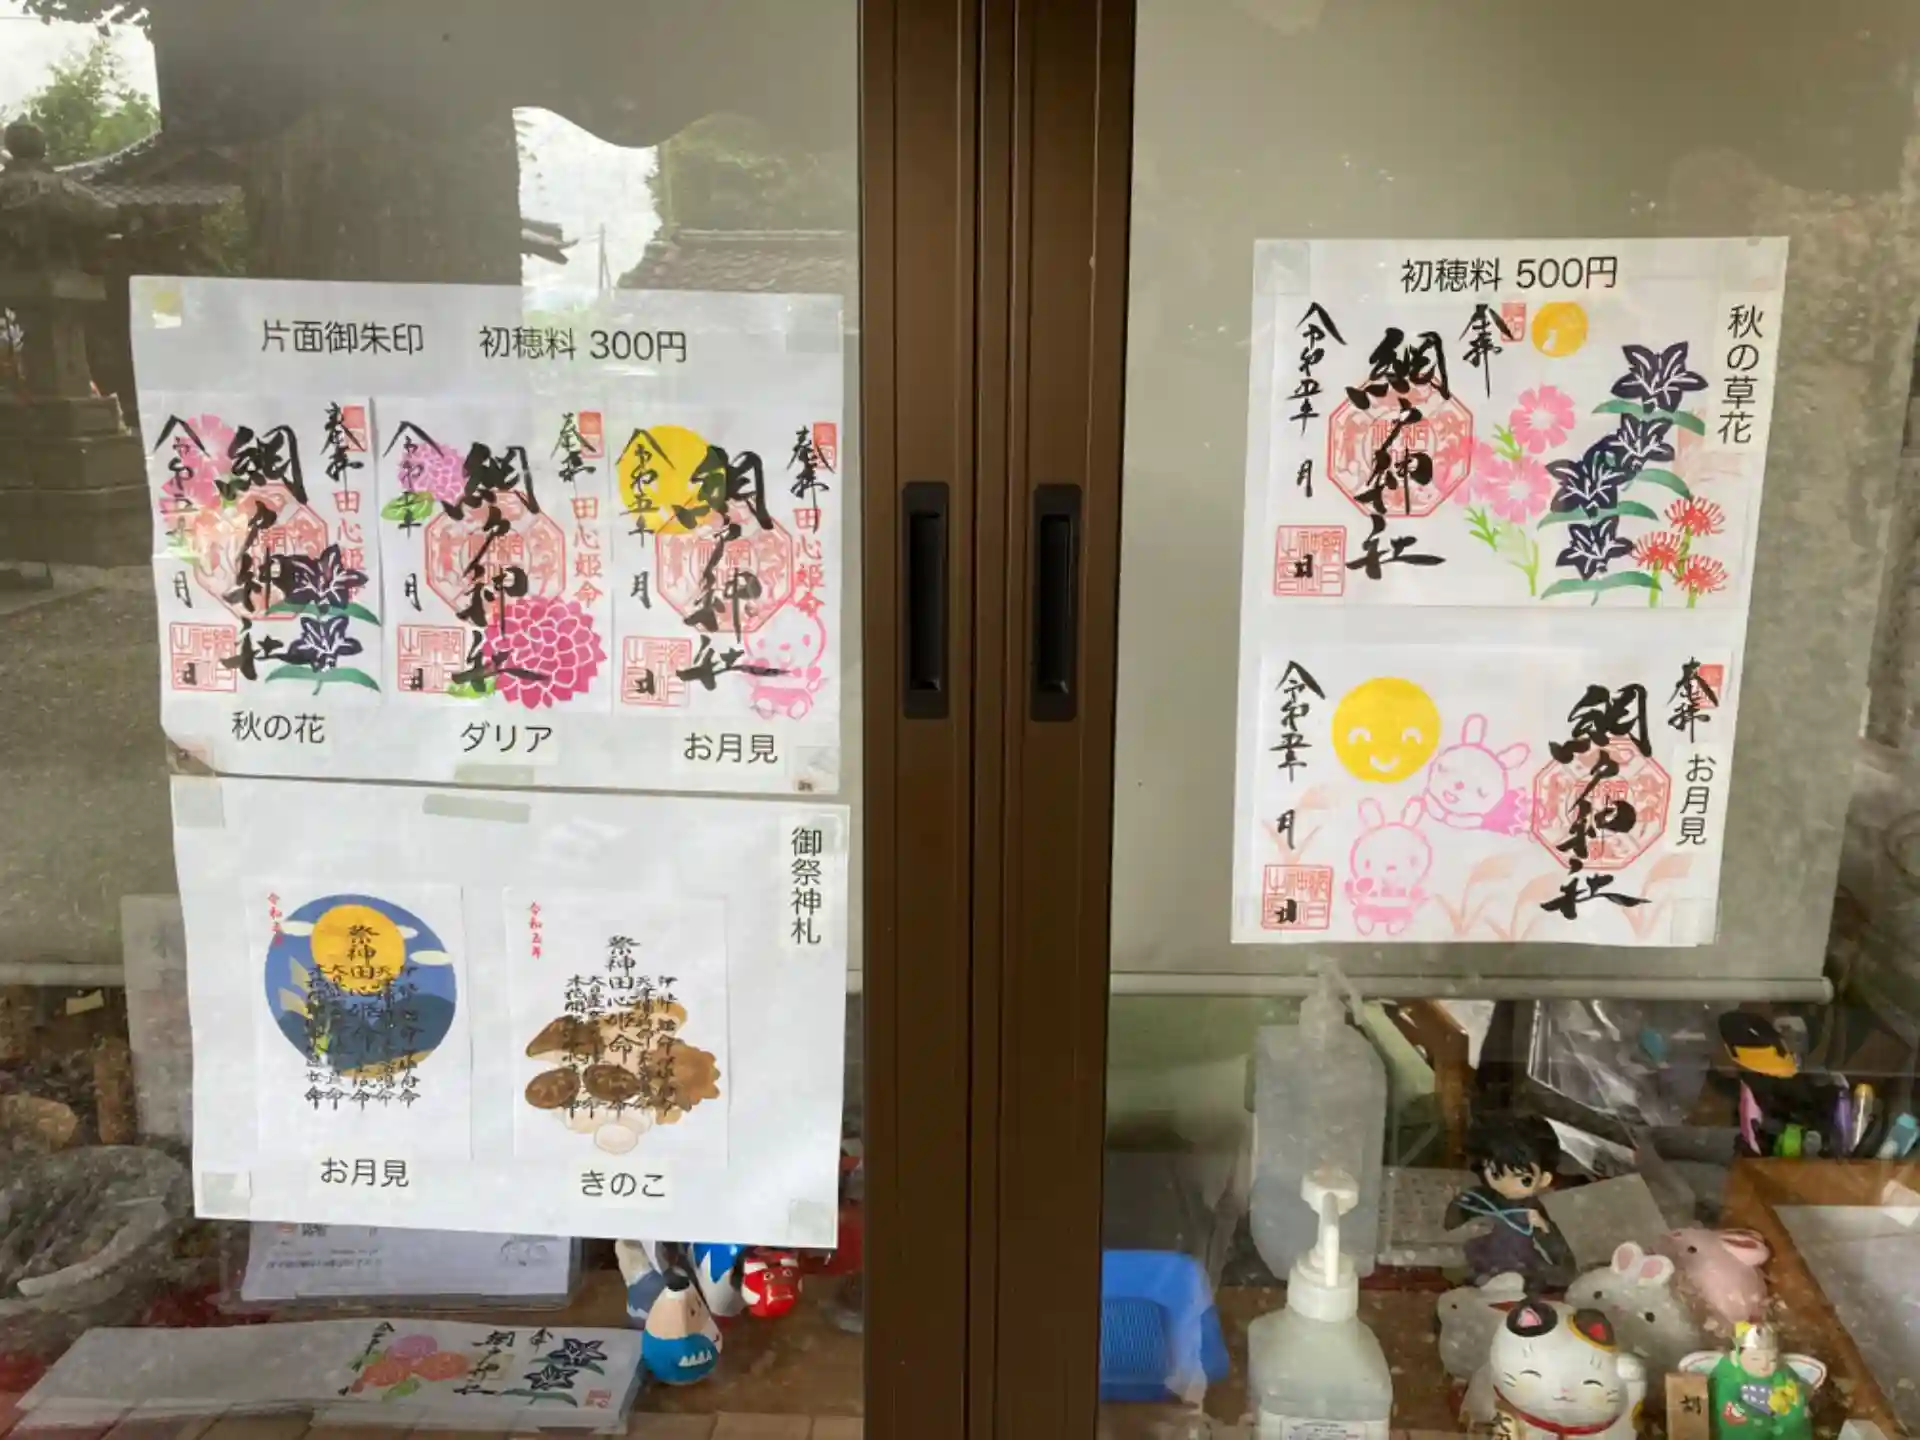 片面御朱印 初穂料 300円
奉拝
田心姫命
網戸神社
令和五年 月 日
秋の花
奉拝
田心姫命
網戸神社
令和五年 月 日
ダリア
奉拝
田心姫命
網戸神社
令和五年 月 日
お月見
御祭神札
令和五年
祭神
田心姫命
お月見
令和五年
祭神
田心姫命
きのこ
初穂料 500円
秋の草花
奉拝
網戸神社
令和五年 月 日
お月見
奉拝
網戸神社
令和五年 月 日